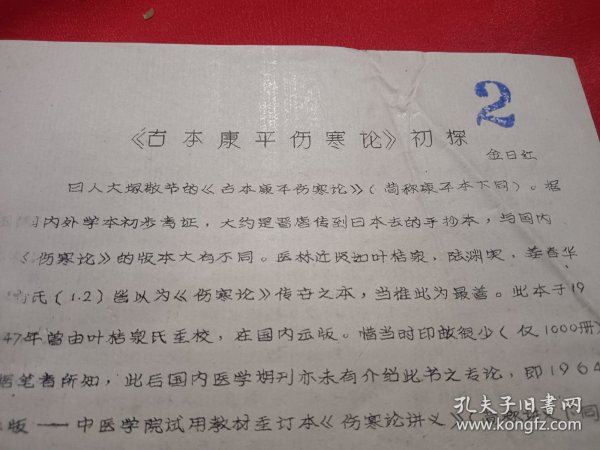 2
《古本康平伤寒论》初探
金日红
日人大塚敬节的《古本康平伤寒论》(简称康平本下同)。据
国内外学本初步考证，大约是晋唐传到日本去的手抄本，与国内
《伤寒论》的版本大有不同。医林近贤如叶桔泉，陆渊雷，姜春华
氏(1.2)皆以为《伤寒论》传世之本，当推此为最善。此本于19
47年曾由叶桔泉氏重校，在国内出版。惜当时印数很少(仅1000册)
据笔者所知，此后国内医学期刊亦未有介绍此书之专论，即1964
版——中医学院试用教材重订本《伤寒论讲义》(简称 下同
孔夫子旧书网
BOOK.KONGFZ.COM